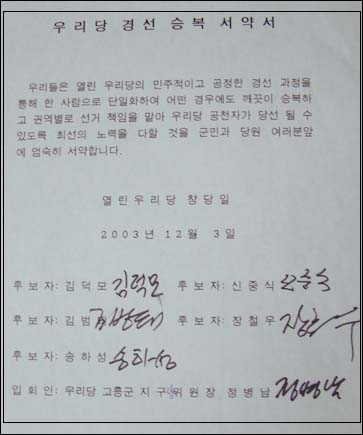 우리당 경선 승복 서약서
우리들은 열린 우리당의 민주적이고 공정한 경선 과정을
통해 한 사람으로 단일화하여 어떤 경우에도 깨끗이 승복하
고 권역별로 선거 책임을 맡아 우리당 공천자가 당선 될 수
있도록 최선의 노력을 다할 것을 군민과 당원 여러분앞
에 엄숙히 서약합니다.
열린우리당 창당일
2003년 12월 3일
후보자: 김덕모 김덕모 후보자: 신중식 신중식
후보자: 김범태 김범태 후보자: 장철우
후보자: 송하성 송하성
입회인: 우리당 고흥군 지구 위원장 정병남 정병남